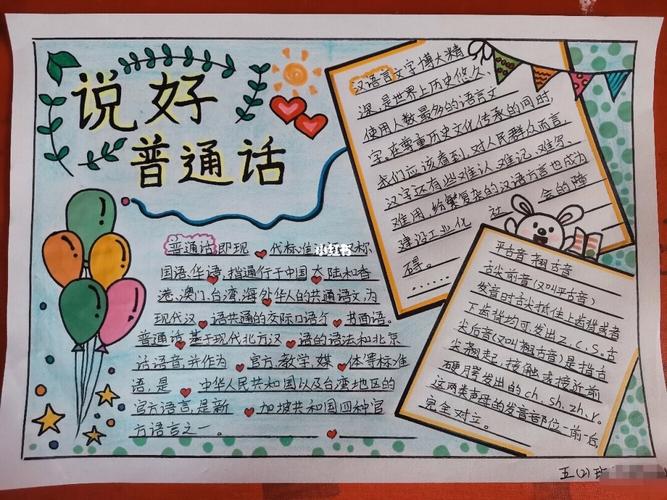 说好
普通话
普通话即现 代标准 又称
国语、华语,指通行于中国大陆和香
港、澳门、台湾、海外华人的共通语文,为
现代汉 语共通的交际口语与 书面语。
普通话基于现代北方汉 语的语法和北京
话语音,并作为 官方、教学、媒 体等标准
语,是 中华人民共和国以及台湾地区的
官方语言,是新 加坡共和国四种官
方语言之一。
小红书
汉语言文字博大精
深,是世界上历史悠久、
使用人数最多的语言文
字。在尊重历史文化传承的同时,
我们应该看到,对人民群众而言,
汉字还有些难认、难记、难写、
难用,纷繁复杂的汉语方言也成为
建设工业化 社 会的障
碍。
平舌音 翘舌音
舌尖前音(又叫平舌音)
发音时舌尖抵住上齿背或者
下齿背均可发出z、c、s。舌
尖后音(又叫翘舌音)是指舌
尖翘起,接触或接近前
硬腭发出的ch、sh、zh、r。
这两类声母的发音部位一前一后,
完全对立。
五(2)班